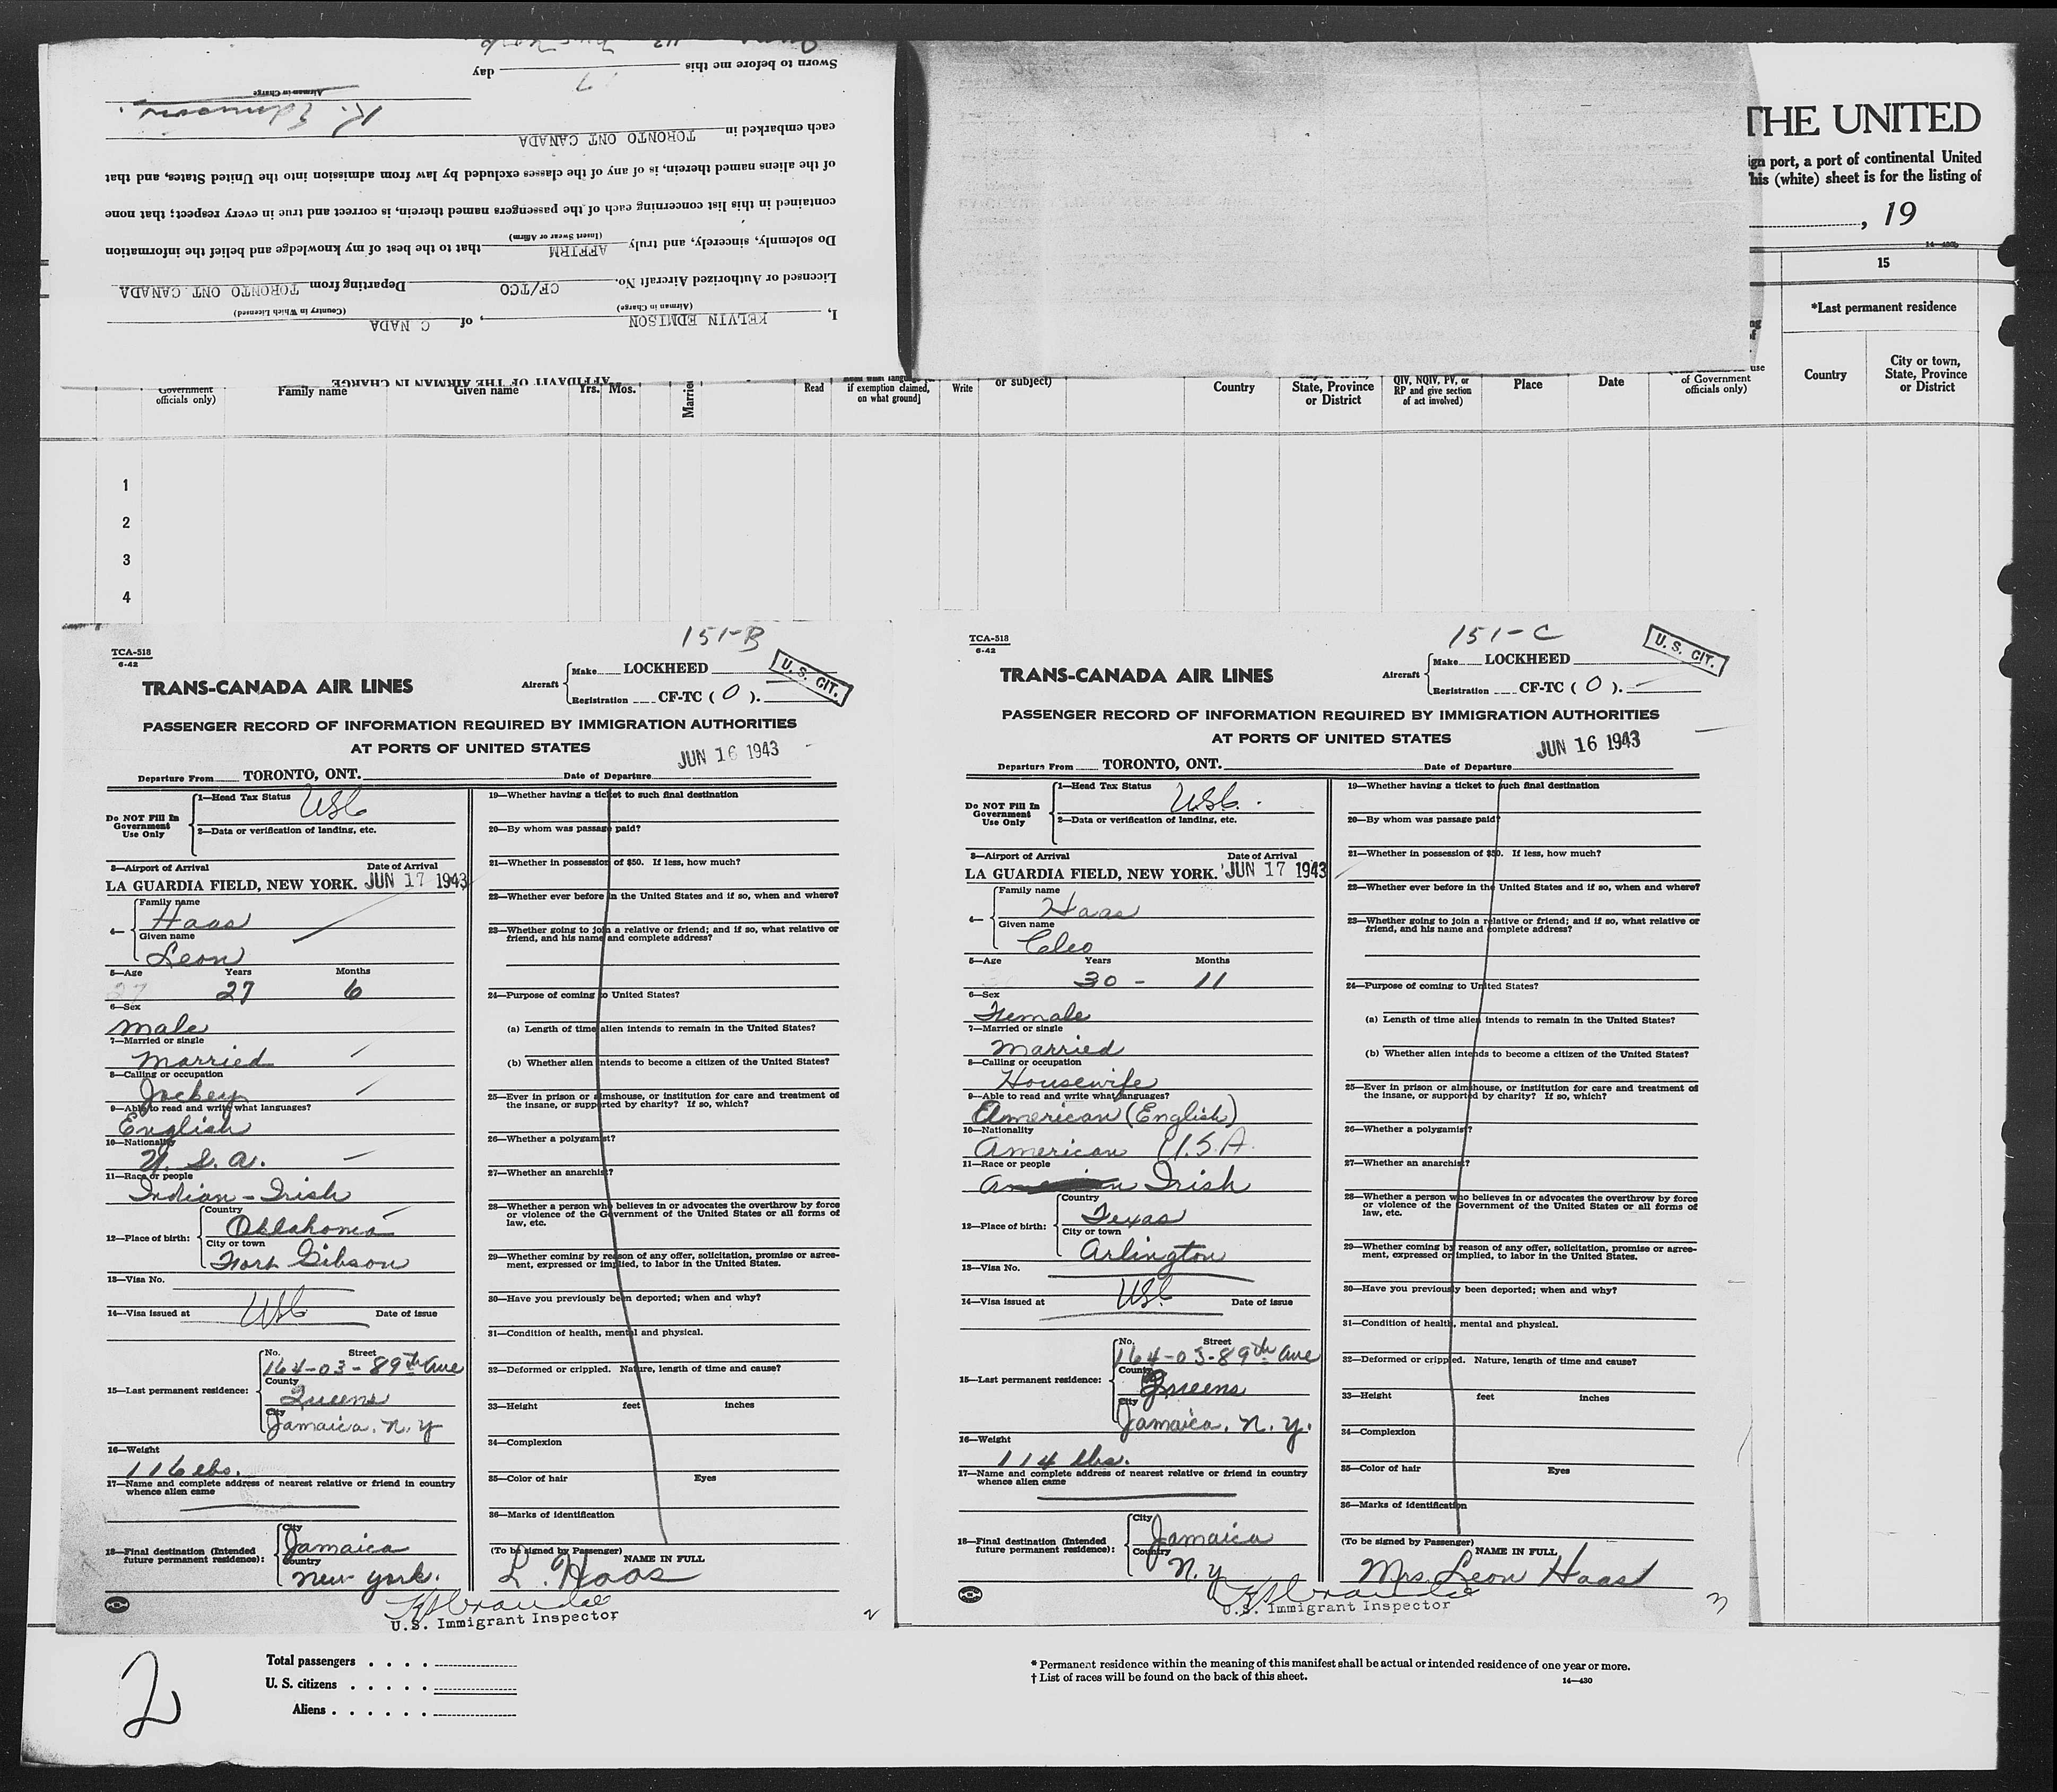 Sworn to before me this 17 day
Airman in Charge
K. Edmison
each embarked in TORONTO ONT CANADA
of the aliens named therein, is of any of the classes excluded by law from admission into the United States, and that
contained in this list concerning each of the passengers named therein, is correct and true in every respect; that none
(Insert Swear or Affirm)
Do solemnly, sincerely, and truly AFFIRM that to the best of my knowledge and belief the information
Licensed or Authorized Aircraft No. CF/TCO Departing from TORONTO ONT. CANADA
(Airman in Charge) (Country in Which Licensed)
I, KELVIN EDMISON, of C NADA
AFFIDAVIT OF THE AIRMAN IN CHARGE
THE UNITED
ign port, a port of continental United
This (white) sheet is for the listing of
, 19
14—430b
15
*Last permanent residence
Country
City or town,
State, Province
or District
Government
officials only)
Family name
Given name
Yrs. Mos.
Married
Read
if exemption claimed,
on what ground]
Write
or subject)
Country
State, Province
or District
QIV, NQIV, PV, or
RP and give section
of act involved)
Place
Date
use
of Government
officials only)
1
2
3
4
151-B
TCA-518
6-42
TRANS-CANADA AIR LINES
Aircraft
Make LOCKHEED
Registration CF-TC ( O ).
U.S. CIT.
PASSENGER RECORD OF INFORMATION REQUIRED BY IMMIGRATION AUTHORITIES
AT PORTS OF UNITED STATES
JUN 16 1943
Departure From TORONTO, ONT. Date of Departure
Do NOT Fill In
Government
Use Only
1—Head Tax Status USC
2—Data or verification of landing, etc.
3—Airport of Arrival Date of Arrival
LA GUARDIA FIELD, NEW YORK. JUN 17 1943
4—
Family name
Haas
Given name
Leon
5—Age Years Months
27 27 6
6—Sex
Male
7—Married or single
Married
8—Calling or occupation
Jockey
9—Able to read and write what languages?
English
10—Nationality
U. S. A.
11—Race or people
Indian - Irish
12—Place of birth:
Country
Oklahoma
City or town
Fort Gibson
13—Visa No.
14—Visa issued at USC Date of issue
15—Last permanent residence:
No. Street
164-03-89th Ave
County
Queens
City
Jamaica, N.Y
16—Weight
116 lbs.
17—Name and complete address of nearest relative or friend in country
whence alien came
18—Final destination (Intended
future permanent residence):
City
Jamaica
Country
New York.
19—Whether having a ticket to such final destination
20—By whom was passage paid?
21—Whether in possession of $50. If less, how much?
22—Whether ever before in the United States and if so, when and where?
23—Whether going to join a relative or friend; and if so, what relative or
friend, and his name and complete address?
24—Purpose of coming to United States?
(a) Length of time alien intends to remain in the United States?
(b) Whether alien intends to become a citizen of the United States?
25—Ever in prison or almshouse, or institution for care and treatment of
the insane, or supported by charity? If so, which?
26—Whether a polygamist?
27—Whether an anarchist?
28—Whether a person who believes in or advocates the overthrow by force
or violence of the Government of the United States or all forms of
law, etc.
29—Whether coming by reason of any offer, solicitation, promise or agree-
ment, expressed or implied, to labor in the United States.
30—Have you previously been deported; when and why?
31—Condition of health, mental and physical.
32—Deformed or crippled. Nature, length of time and cause?
33—Height feet inches
34—Complexion
35—Color of hair Eyes
36—Marks of identification
(To be signed by Passenger)
NAME IN FULL
L. Haas
U.S. Immigrant Inspector
2
151-C
TCA-518
6-42
TRANS-CANADA AIR LINES
Aircraft
Make LOCKHEED
Registration CF-TC ( O ).
U.S. CIT.
PASSENGER RECORD OF INFORMATION REQUIRED BY IMMIGRATION AUTHORITIES
AT PORTS OF UNITED STATES
JUN 16 1943
Departure From TORONTO, ONT. Date of Departure
Do NOT Fill In
Government
Use Only
1—Head Tax Status USC.
2—Data or verification of landing, etc.
3—Airport of Arrival Date of Arrival
LA GUARDIA FIELD, NEW YORK. JUN 17 1943
4—
Family name
Haas
Given name
Cleo
5—Age Years Months
30 - 11
6—Sex
Female
7—Married or single
Married
8—Calling or occupation
Housewife
9—Able to read and write what languages?
American (English)
10—Nationality
American U.S.A.
11—Race or people
American Irish
12—Place of birth:
Country
Texas
City or town
Arlington
13—Visa No.
14—Visa issued at USC Date of issue
15—Last permanent residence:
No. Street
164-03-89th Ave
County
Queens
City
Jamaica, N.Y.
16—Weight
114 lbs.
17—Name and complete address of nearest relative or friend in country
whence alien came
18—Final destination (Intended
future permanent residence):
City
Jamaica
Country
N.Y
19—Whether having a ticket to such final destination
20—By whom was passage paid?
21—Whether in possession of $50. If less, how much?
22—Whether ever before in the United States and if so, when and where?
23—Whether going to join a relative or friend; and if so, what relative or
friend, and his name and complete address?
24—Purpose of coming to United States?
(a) Length of time alien intends to remain in the United States?
(b) Whether alien intends to become a citizen of the United States?
25—Ever in prison or almshouse, or institution for care and treatment of
the insane, or supported by charity? If so, which?
26—Whether a polygamist?
27—Whether an anarchist?
28—Whether a person who believes in or advocates the overthrow by force
or violence of the Government of the United States or all forms of
law, etc.
29—Whether coming by reason of any offer, solicitation, promise or agree-
ment, expressed or implied, to labor in the United States.
30—Have you previously been deported; when and why?
31—Condition of health, mental and physical.
32—Deformed or crippled. Nature, length of time and cause?
33—Height feet inches
34—Complexion
35—Color of hair Eyes
36—Marks of identification
(To be signed by Passenger)
NAME IN FULL
Mrs. Leon Haas
U.S. Immigrant Inspector
3
2
Total passengers . . . .
U. S. citizens . . . . .
Aliens . . . . . .
* Permanent residence within the meaning of this manifest shall be actual or intended residence of one year or more.
† List of races will be found on the back of this sheet.
14—430